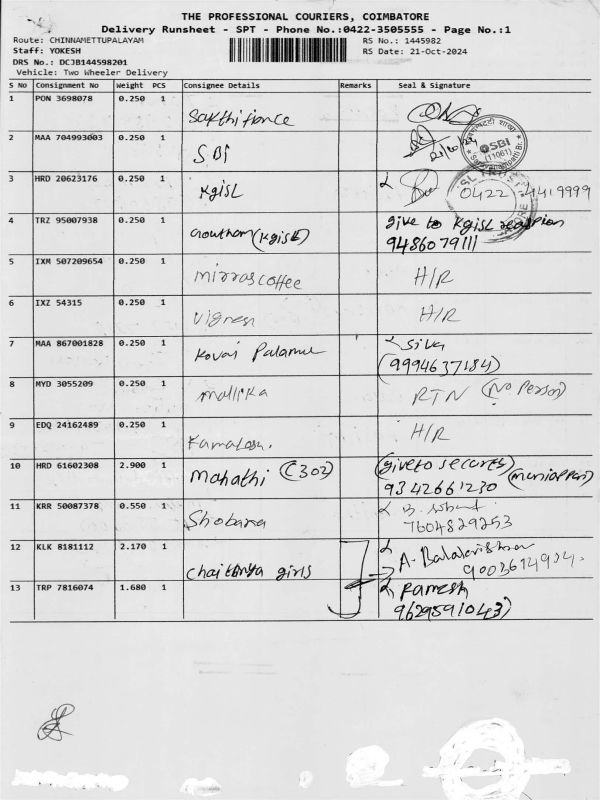 THE PROFESSIONAL COURIERS, COIMBATORE
Delivery Runsheet - SPT - Phone No.:0422-3505555 - Page No.:1
Route: CHINNAMETTUPALAYAM RS No.: 1445982
Staff: YOKESH RS Date: 21-Oct-2024
DRS No.: DCJB144598201
Vehicle: Two Wheeler Delivery
S No Consignment No Weight PCS Consignee Details Remarks Seal & Signature
1 PON 3698078 0.250 1 Sakthifinance
2 MAA 704993003 0.250 1 SBI 21/10/24
SBI
(11061)
3 HRD 20623176 0.250 1 KgisL 0422 4419999
4 TRZ 95007938 0.250 1 Gowtham (KgisL) give to KgisL
9486079111
5 IXM 507209654 0.250 1 mirras coffee H/R
6 IXZ 54315 0.250 1 Vignesh H/R
7 MAA 867001828 0.250 1 Kovai Palamul Siva
(9994637184)
8 MYD 3055209 0.250 1 mallika RTN (No Person)
9 EDQ 24162489 0.250 1 Kamalesh. H/R
10 HRD 61602308 2.900 1 Mahathi (C302) (give to security)
9342661230 (muniappan)
11 KRR 50087378 0.550 1 Shobana B.
7604829253
12 KLK 8181112 2.170 1 chaitanya girls A. Balakrishnan
13 TRP 7816074 1.680 1 Ramesh
9629591043)